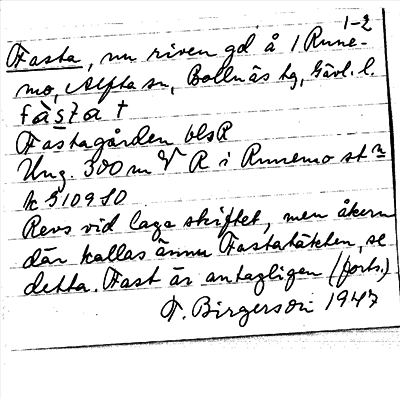 1-2
Fasta, nu riven gd å 1 Rune-
mo, Alfta sn, Bollnäs tg, Gävl. l.
fàsta t
Fastagården blsR
Ung. 300 m V R i Runemo st n
k 510980
Revs vid laga skiftet, men åkern
där kallas ännu Fastatäkten, se
detta. Fast är antagligen (forts.)
F. Birgerson 1947